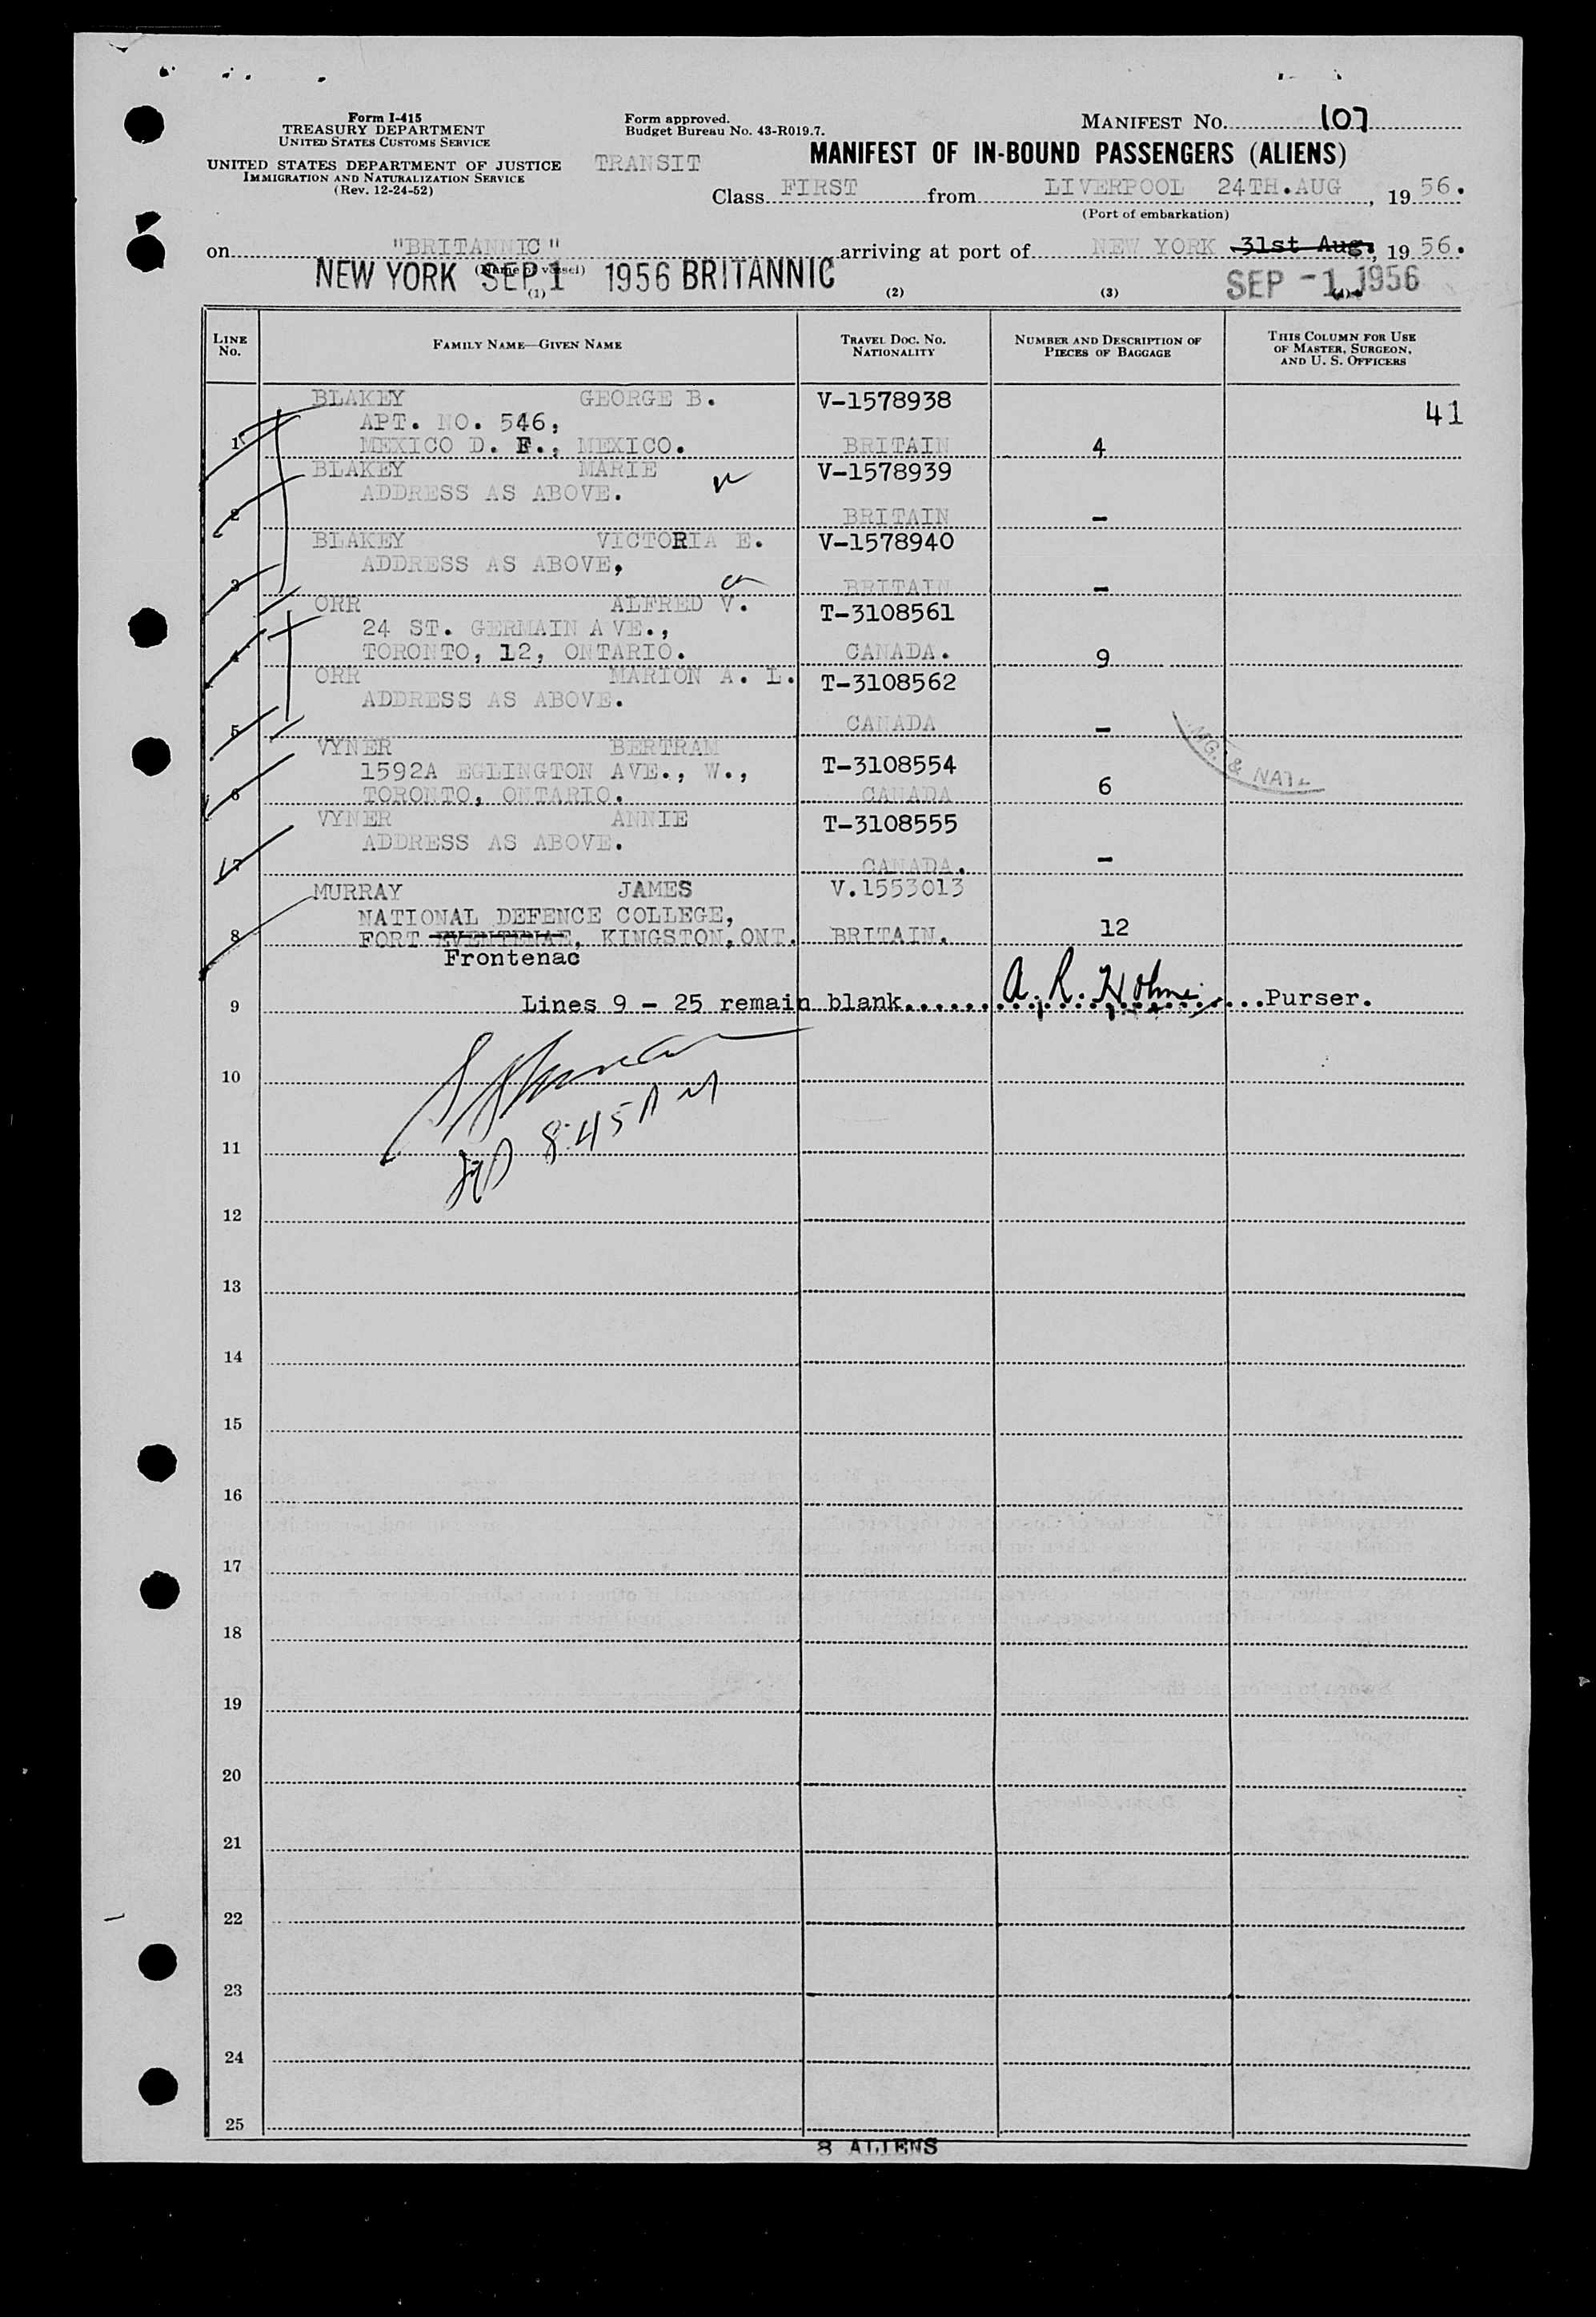 Form I-415
TREASURY DEPARTMENT
UNITED STATES CUSTOMS SERVICE
UNITED STATES DEPARTMENT OF JUSTICE
IMMIGRATION AND NATURALIZATION SERVICE
(Rev. 12-24-52)
Form approved.
Budget Bureau No. 43-R019.7.
TRANSIT
MANIFEST NO. 107
MANIFEST OF IN-BOUND PASSENGERS (ALIENS)
Class FIRST from LIVERPOOL 24TH.AUG, 19 56.
(Port of embarkation)
on "BRITANNIC" arriving at port of NEW YORK 31st Aug., 19 56.
(Name of vessel)
NEW YORK SEP 1 1956 BRITANNIC
SEP -1 1956
(1) (2) (3) (4)
LINE NO. FAMILY NAME—GIVEN NAME TRAVEL DOC. NO. NATIONALITY NUMBER AND DESCRIPTION OF PIECES OF BAGGAGE THIS COLUMN FOR USE OF MASTER, SURGEON, AND U. S. OFFICERS
BLAKEY GEORGE B. V-1578938 41
APT. NO. 546,
1 MEXICO D. F., MEXICO. BRITAIN 4
BLAKEY MARIE V-1578939
ADDRESS AS ABOVE.
2 BRITAIN -
BLAKEY VICTORIA E. V-1578940
ADDRESS AS ABOVE,
3 BRITAIN -
ORR ALFRED V. T-3108561
24 ST. GERMAIN AVE.,
4 TORONTO, 12, ONTARIO. CANADA. 9
ORR MARION A. L. T-3108562
ADDRESS AS ABOVE.
5 CANADA -
VYNER BERTRAM
1592A EGLINGTON AVE., W., T-3108554
6 TORONTO, ONTARIO. CANADA 6
IMG. & NAT
VYNER ANNIE T-3108555
ADDRESS AS ABOVE.
7 CANADA. -
MURRAY JAMES V.1553013
NATIONAL DEFENCE COLLEGE,
8 FORT EVENTENAE, KINGSTON,ONT. BRITAIN. 12
Frontenac
9 Lines 9 - 25 remain blank....... A. R. Holme ....Purser.
10
8:45 AM
11
12
13
14
15
16
17
18
19
20
21
22
23
24
25
8 ALIENS